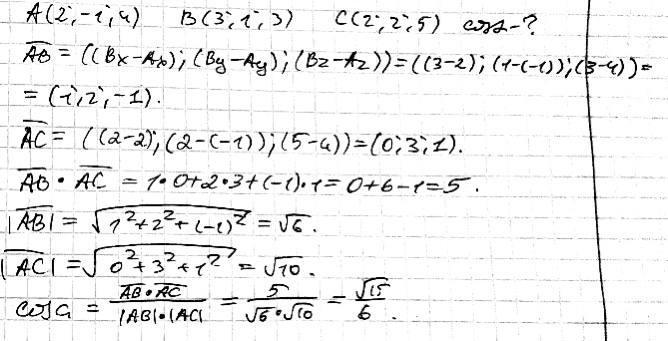 A(2;-1;4) B(3;1;3) C(2;2;5) cosα-?
AB = ((Bx-Ax);(By-Ay);(Bz-Az))=((3-2);(1-(-1));(3-4))=
= (1;2;-1).
AC = ((2-2);(2-(-1));(5-4))=(0;3;1).
AB · AC = 1·0+2·3+(-1)·1=0+6-1=5.
|AB| = √(1²+2²+(-1)²) = √6.
|AC| = √(0²+3²+1²) = √10.
cosα = (AB·AC)/(|AB|·|AC|) = 5/(√6·√10) = √15/6.